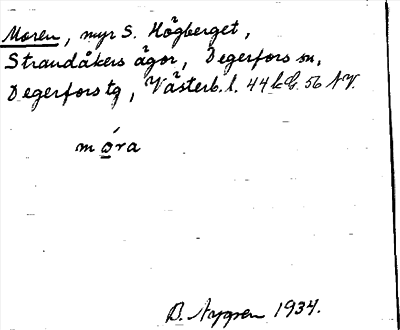 Moren, myr S. Högberget,
Strandåkers ägor, Degerfors sn,
Degerfors tg, Västerb. l. 44 k G. 56 NV.
móra
D. Nygren 1934.